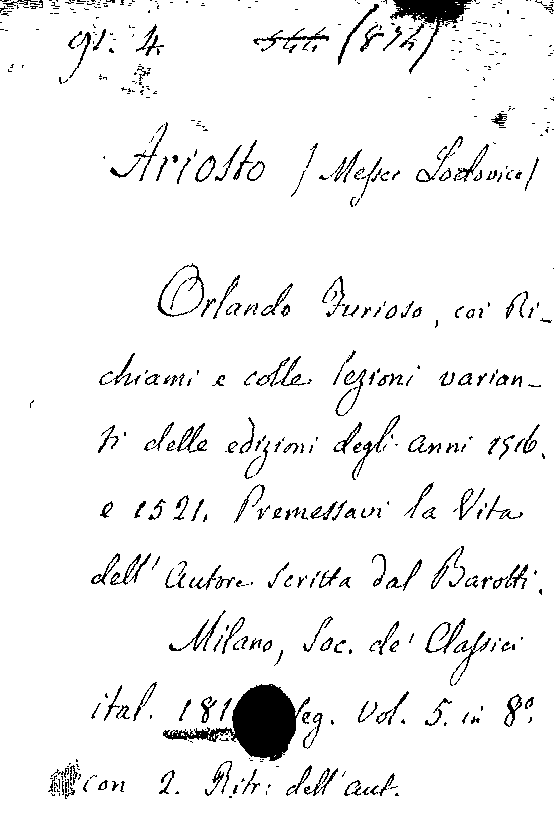 91. 4. 544. (874)
Ariosto (Messer Lodovico)
Orlando Furioso, coi Ri-
chiami e colle lezioni varian-
ti delle edizioni degli anni 1516.
e 1521. Premessavi la Vita
dell'Autore scritta dal Barotti.
Milano, Soc. de' Classici
ital. 181 seg. Vol. 5. in 8º.
con 2. Ritr: dell'aut.